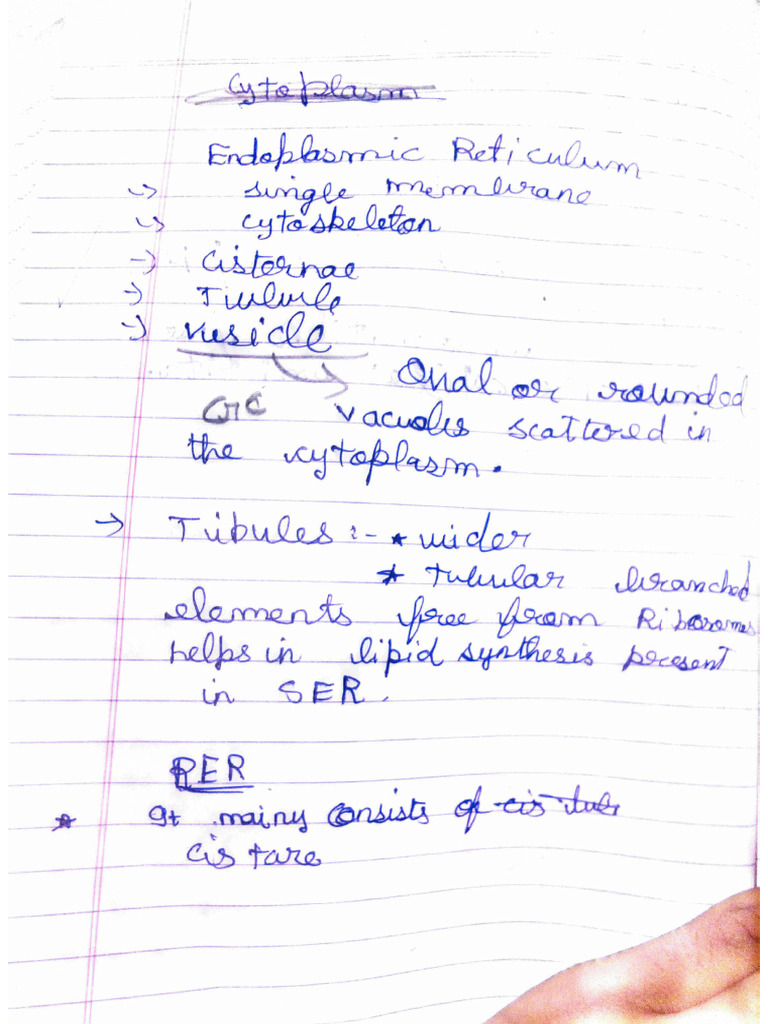 Cytoplasm
Endoplasmic Reticulum
→ single membrane
→ cytoskeleton
→ cisternae
→ Tubule
→ vesicle
→ Oval or rounded
vacuoles scattered in
the cytoplasm.
→ Tubules :- * wider
* tubular branched
elements free from Ribosomes
helps in lipid synthesis present
in SER.
RER
* It mainy consists of cis tube
cis tare